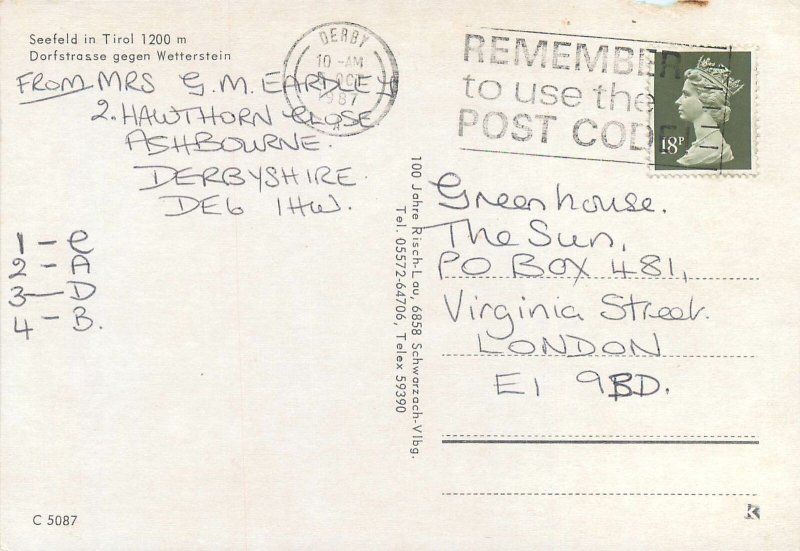 Seefeld in Tirol 1200 m
Dorfstrasse gegen Wetterstein
FROM MRS G.M. EARDLEY
2. HAWTHORN CLOSE
ASHBOURNE.
DERBYSHIRE.
DE6 1HW.
1 - C
2 - A
3 - D
4 - B.
C 5087
DERBY
10 - AM
OCT
1987
REMEMBER
to use the
POST CODE
18P
100 Jahre Risch-Lau, 6858 Schwarzach-Vlbg.
Tel. 05572-64706, Telex 59390
Greenhouse.
The Sun,
PO BOX 481,
Virginia Street.
LONDON
E1 9BD.
K